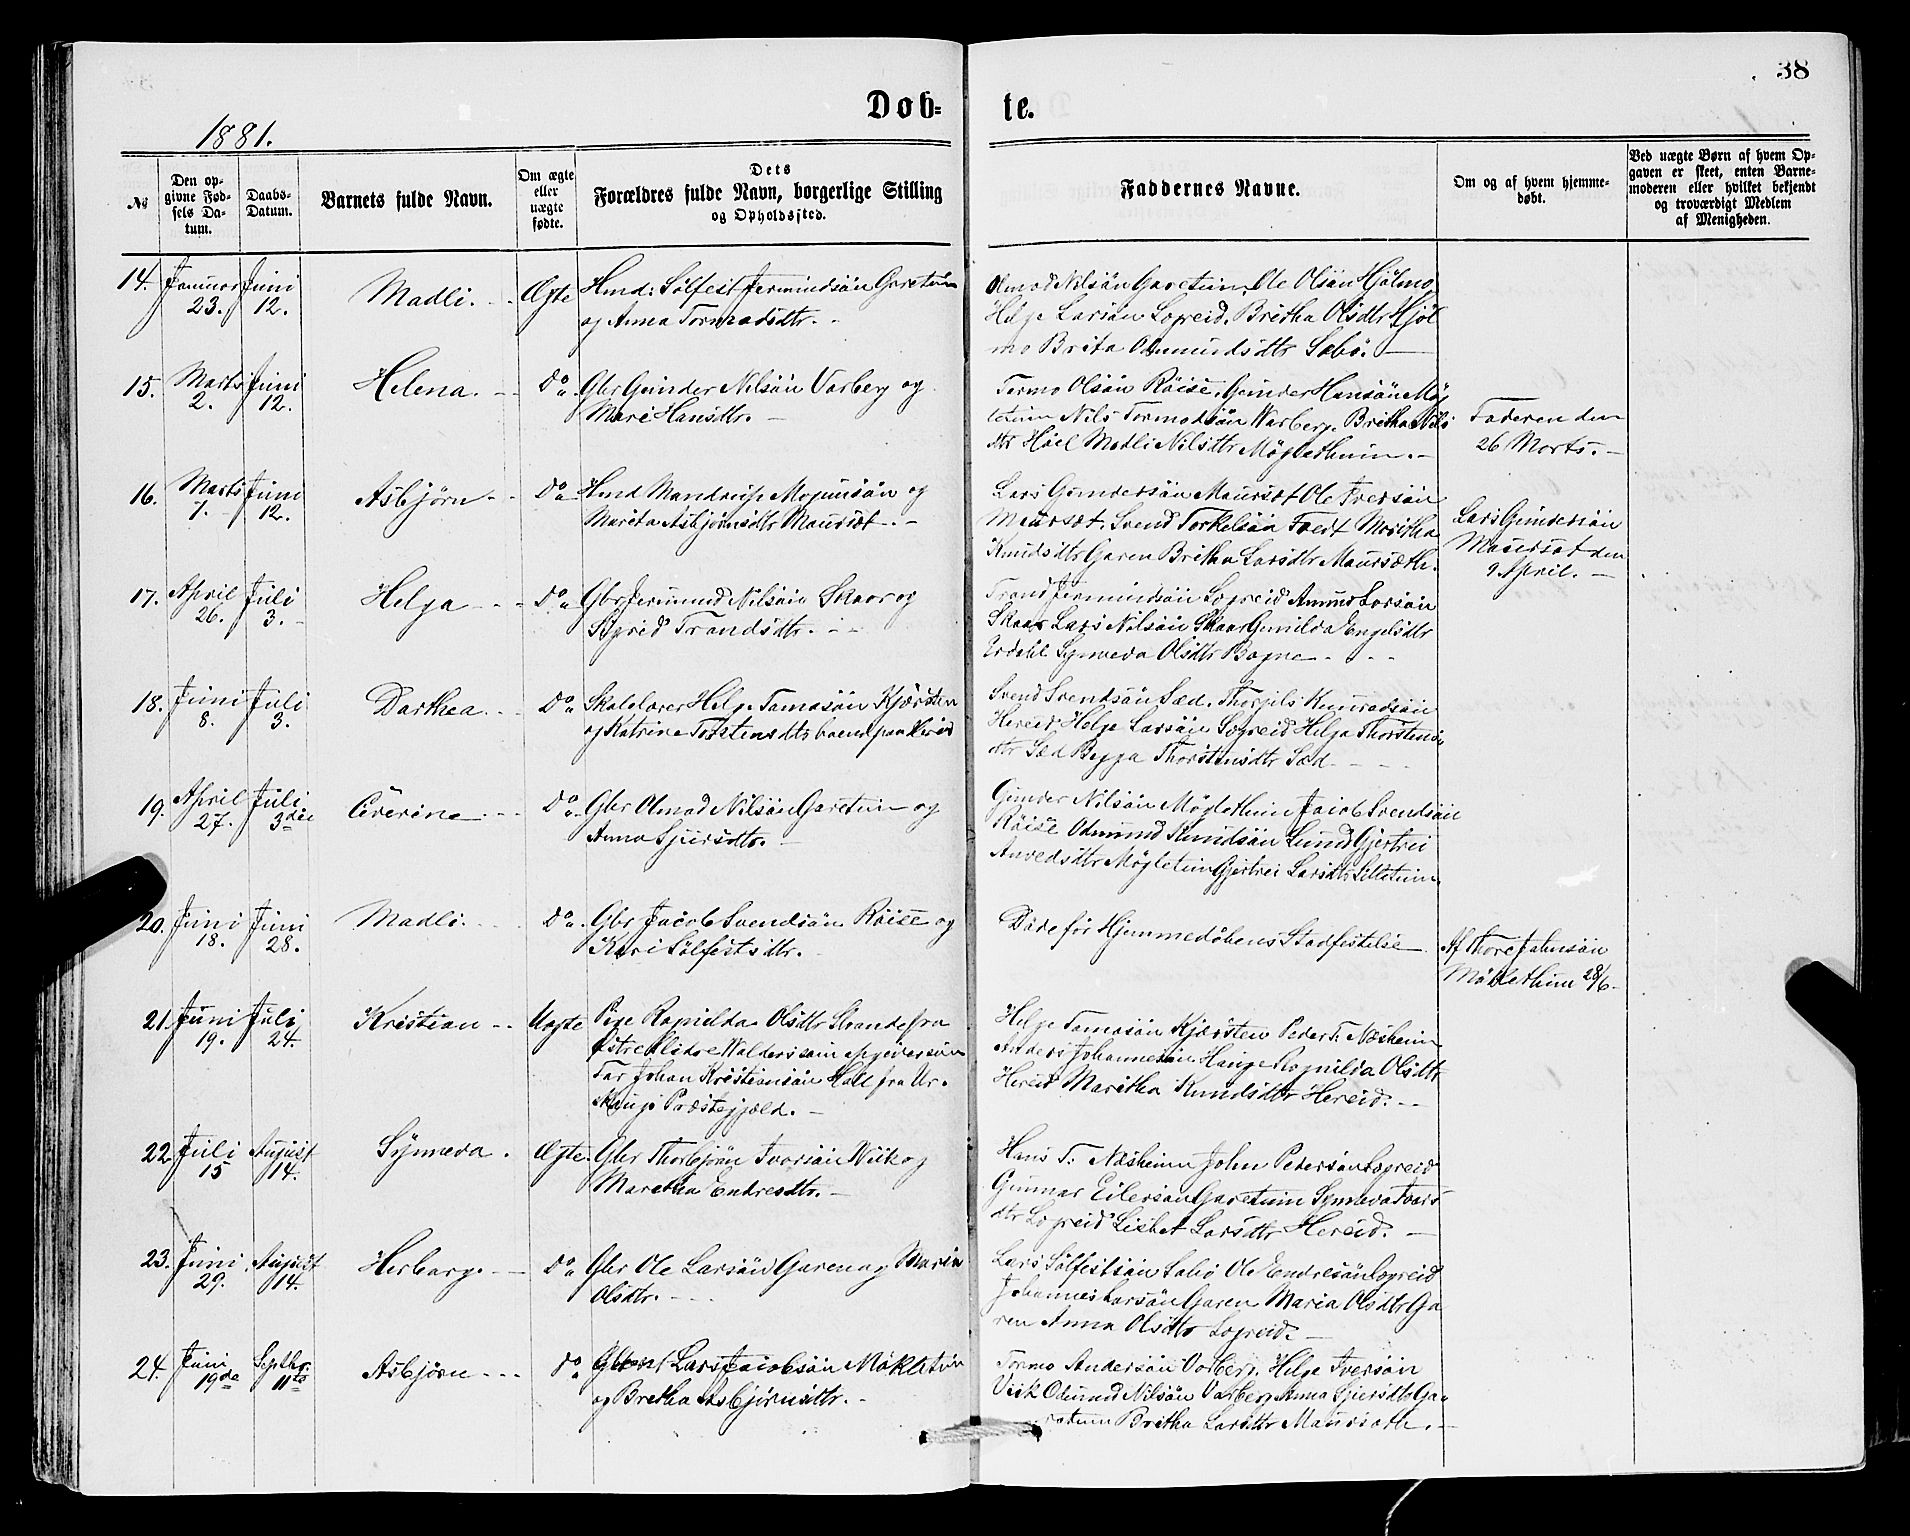 38
Døb- te.
1881.
No
Den op-
givne Fød-
sels Da-
tum.
Daabs-
Datum.
Barnets fulde Navn.
Om ægte
eller
uægte
fødte.
Dets
Forældres fulde Navn, borgerlige Stilling
og Opholdssted.
Faddernes Navne.
Om og af hvem hjemme-
døbt.
Ved uægte Børn af hvem Op-
gaven er skeet, enten Barne-
moderen eller hvilket bekjendt
og troværdigt Medlem
af Menigheden.
14. Januar 23. Juni 12. Madli. Ægte
Hmd: Sölfest Jermundsön Garetun
og Anna Tormodsdtr.
Olmod Nilsön Garetun, Ole Olsön Hjölmo,
Helge Larsön Legreid. Britha Olsdtr Hjöl
mo Brita Odmundsdtr Sæbö.
15. Marts 2. Juni 12. Helena. Do
Gbr Gunder Nilsön Varberg og
Mari Hansdtr.
Tormo Olsön Röise, Gunder Hansön Mög
letun Nils Tormodsön Warberg. Britha Nils
dtr Häel Madli Nilsdtr Möglethun.
Faderen den
26 Marts.
16. Marts 7. Juni 12. Asbjörn Do
Hmd Mandrup Mogunsön og
Marita Asbjörnsdtr Maursæt.
Lars Gundersön Maursæt Ole Iversön
Maursæt. Svend Torkelsön Tveit Maritha
Knudsdtr Garen Britha Larsdtr Maursæth.
Lars Gundersön
Maursæt den
9 April.
17. April 26. Juli 3. Helga Do
Gbr Jermund Nilsön Skaar og
Sigrid Trondsdtr.
Trond Jermundsön Legreid Amund Larsön
Skaar Lars Nilsön Skaar Gunilda Engelsdtr
Erdahl Synneva Olsdtr Bagne
18. Juni 8. Juli 3. Darthea. Do
Skolelærer Helge Tomasön Kjærsten
og Katrine Torstensdtr boend paa Hereid
Svend Svendsön Sæd. Thorgils Knuradsön
Hereid Helge Larsön Legreid Helga Thorstens
dtr Sæd Begga Thorstensdtr Sæd
19. April 27. Juli 3die Ceverine Do
Gbr Olmod Nilsön Garetun og
Anna Sjursdtr.
Gunder Nilsön Möglethun Jacob Svendsön
Röise Odmund Knudsön Lund Gjertrei
Anvedsdtr Mögletun Gjertrei Larsdtr Lilletun
20. Juni 18. Juni 28. Madli. Do
Gbr Jacob Svendsön Röise og
Kari Sölfestsdtr.
Döde för Hjemmedöbens Stadfestelse
Af Thore Johnsön
Möklethun 28/6
21. Juni 19. Juli 24. Kristian Uægte
Pige Ragnilda Olsdtr Strande fra
Östre Slidre Walders som opgiver som
Far Johan Kristiansön Holt fra Ur-
skaugs Præstegjæld.
Helge Tomasön Kjærsten Peder T. Næsheim
Anders Johannesön Hauge Ragnilda Olsdtr
Hereid Maritha Knudsdtr Hereid.
22. Juli 15 August 14. Synneva. Ægte.
Gbr Thorbjörn Ivarsön Wiik og
Maretha Endresdtr.
Hans T. Næsheim John Pedersön Legreid
Gunnar Eilersön Garetun Synneva Ivars
dtr Legreid Lisbet Larsdtr Hereid.
23. Juni 29. August 14. Herborg. Do
Gbr Ole Larsön Garen og Maria
Olsdtr.
Lars Sölfestsön Sæbö Ole Endresön Legreid
Johannes Larsön Garen Maria Olsdtr Ga
ren Anna Olsdtr Legreid.
24. Juni 19de Septbr 11te Asbjörn Do
Lars Jacobsön Mökletun
og Bretha Asbjörnsdtr.
Tormo Andersön Varberg. Helge Iversön
Viik Odmund Nilsön Varberg Anna Sjursdtr Ga
retun Britha Larsdtr Maursæth.